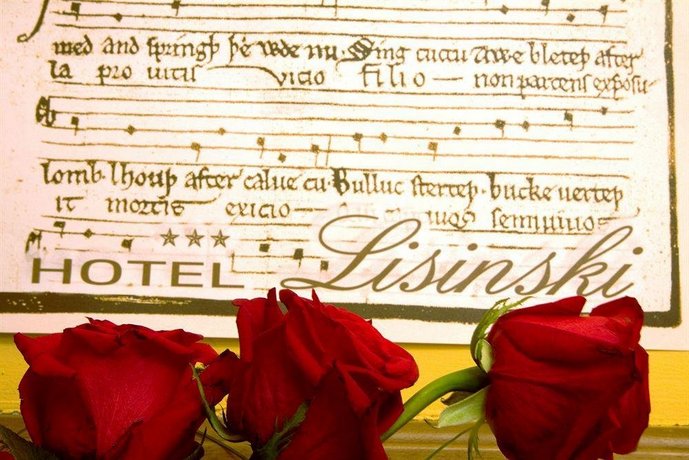 med and springþ þe wde nu. Sing cuccu Awe bleteþ after
la pro uitis vicio filio non parcens exposu
lomb. lhouþ after calue cu. Bulluc sterteþ. bucke uerteþ
it mortis exicio semiuiuos
★★★
HOTEL Lisinski